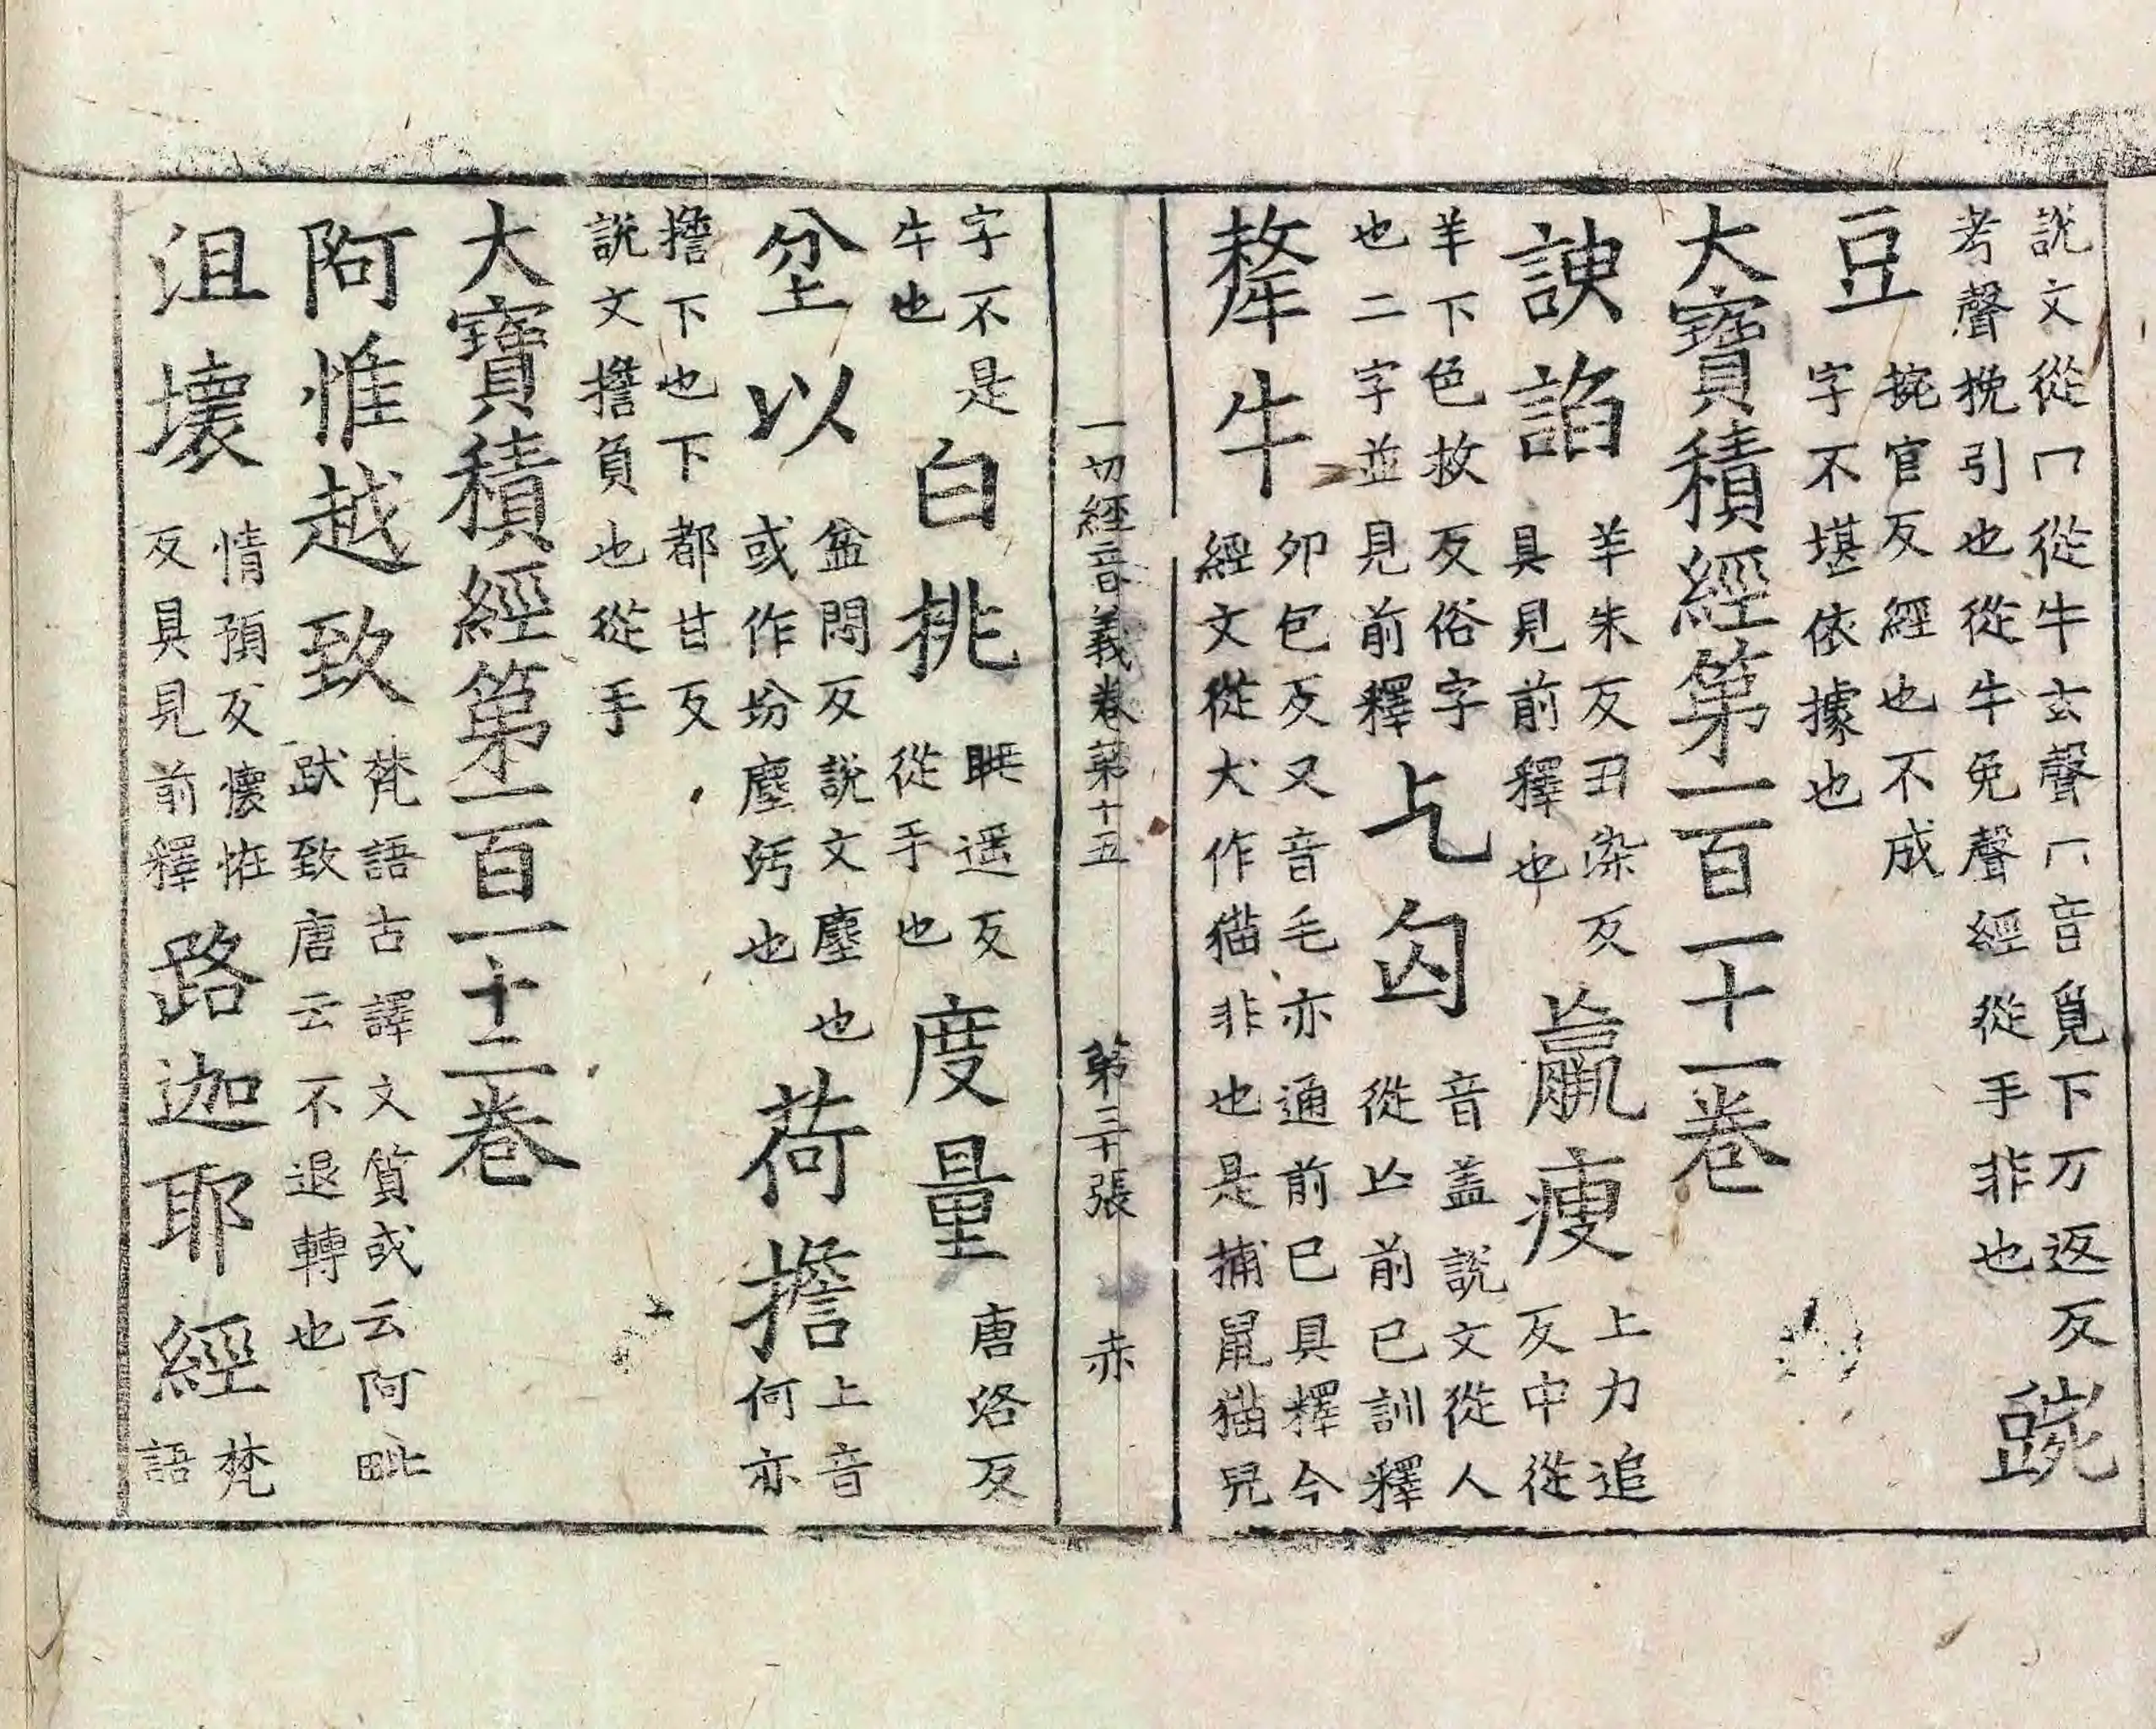 説文從冖從牛玄聲冖音覓下万返反
考聲挽引也從牛免聲經從手非也
豌
豆
捥官反經也不成
字不堪依據也
大寶積經第一百一十一卷
諛諂
羊朱反丑染反
具見前釋也
羸瘦
上力追
反中從
羊下色救反俗字
也二字並見前釋
乞匃
音盖説文從人
從亾前已訓釋
犛牛
夘包反又音毛亦通前已具釋今
經文從犬作猫非也是捕鼠猫兒
一切經音義卷第十五 第三十張 赤
字不是
牛也
白挑
眺遥反
從手也
度量
唐洛反
坌以
盆悶反説文塵也
或作坋塵污也
荷擔
上音
何亦
擔下也下都甘反
説文擔負也從手
大寶積經第一百一十二卷
阿惟越致
梵語古譯文質或云阿毗
跋致唐云不退轉也
沮壞
情預反懷恠
反具見前釋
路迦耶經
梵
語